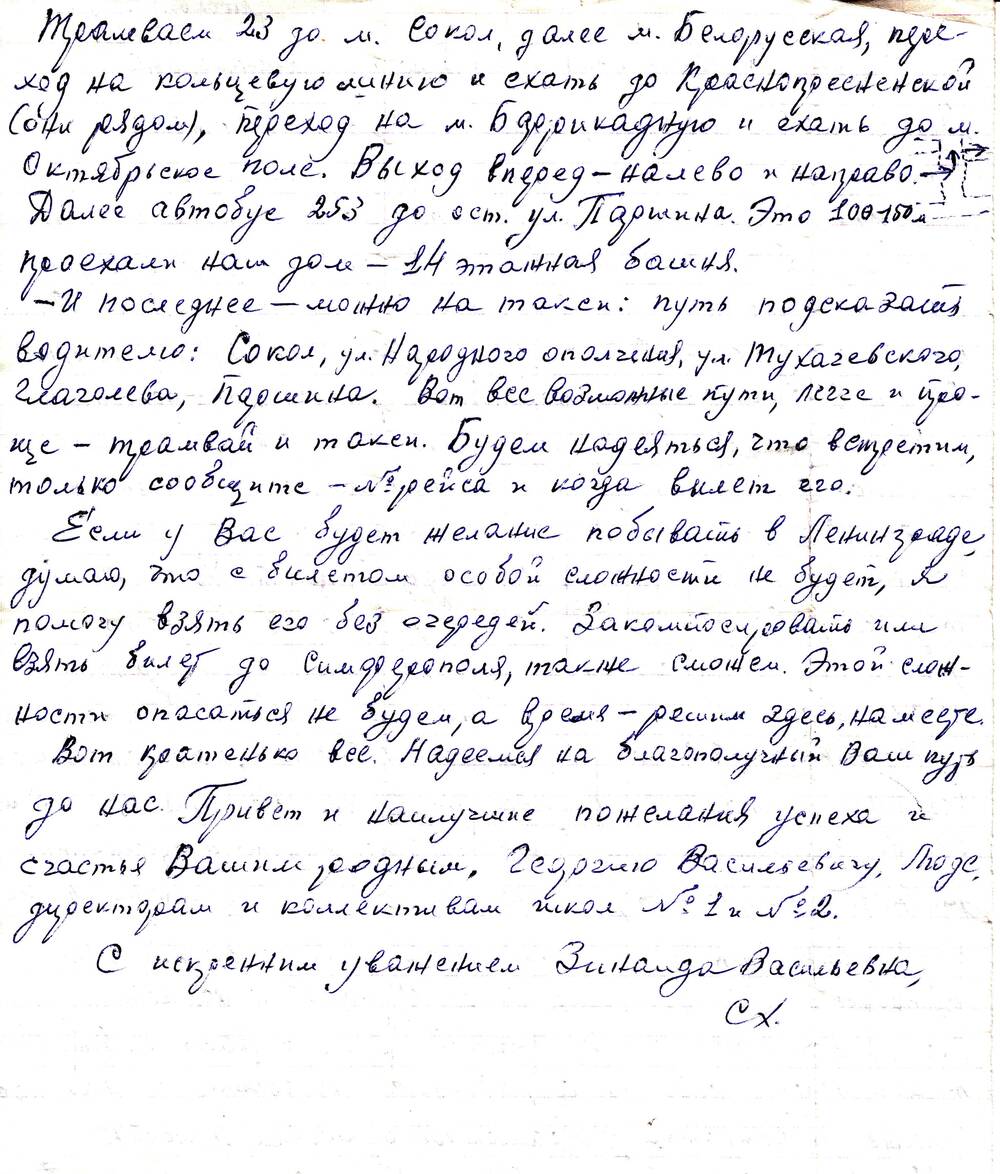 Трамваем 23 до м. Сокол, далее м. Белорусская, пере-
ход на кольцевую линию и ехать до Краснопресненской
(они рядом), переход на м. Баррикадную и ехать до м.
Октябрьское поле. Выход вперед – налево и направо.
Далее автобус 253 до ост. ул. Паршина. Это 100-150м
проехали наш дом – 14 этажная башня.
– И последнее – можно на такси: путь подсказать
водителю: Сокол, ул. Народного ополчения, ул. Тухачевского,
Глаголева, Паршина. Вот все возможные пути, легче и про-
ще – трамвай и такси. Будем надеяться, что встретим,
только сообщите – № рейса и когда вылет его.
Если у Вас будет желание побывать в Ленинграде,
думаю, что с билетом особой сложности не будет, я
помогу взять его без очередей. Закомпосировать или
взять билет до Симферополя, также сможем. Этой слож-
ности опасаться не будем, а время – решим здесь, на месте.
Вот кратенько все. Надеемся на благополучный Ваш путь
до нас. Привет и наилучшие пожелания успеха и
счастья Вашим родным, Георгию Васильевичу, Люде,
директорам и коллективам школ № 1 и № 2.
С искренним уважением Зинаида Васильевна,
СХ.